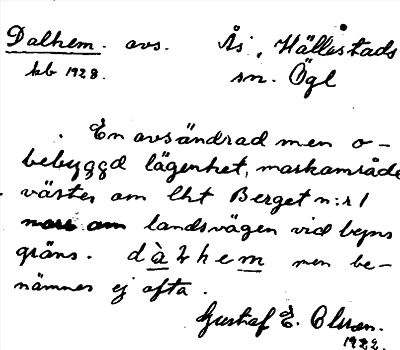 Dalhem. avs. Ås, Hällestads
kb 1928. sn. Ögl
En avsöndrad men o-
bebyggd lägenhet, markområde
väster om lht Berget n:r 1
norr om landsvägen vid byns
gräns. dàlhem men be-
nämnes ej ofta.
Gustaf E. Olsson.
1922.